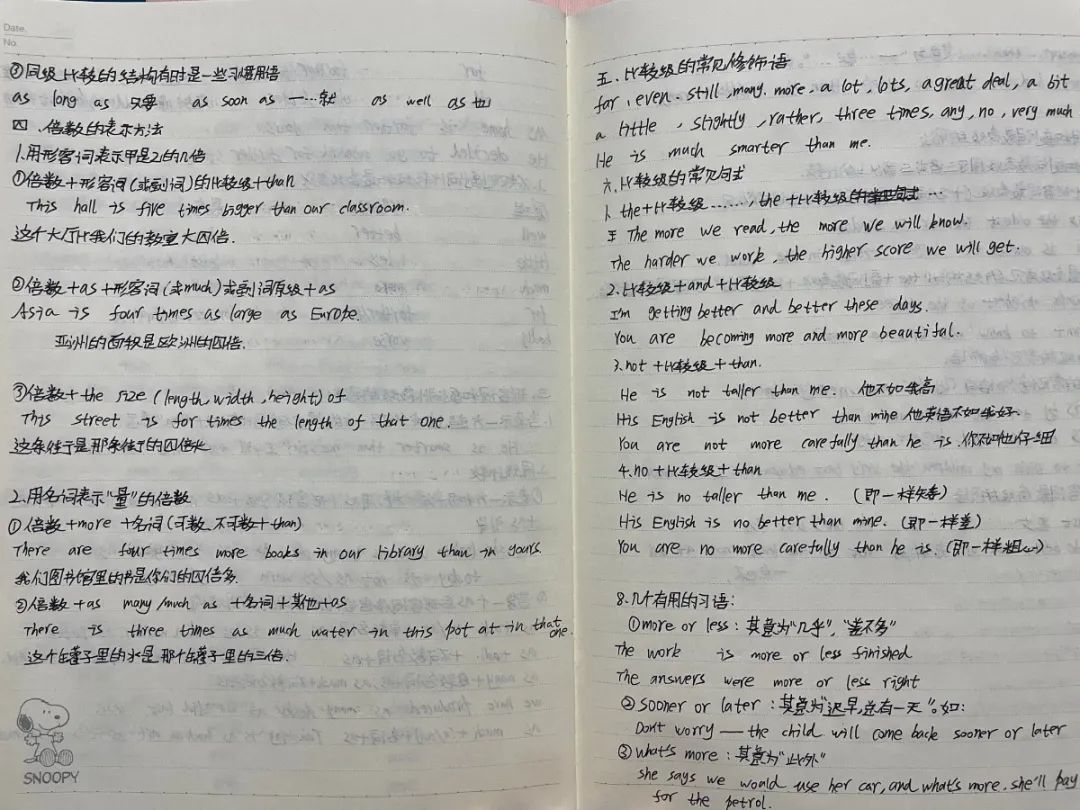 Date.
No.
②同级比较的结构有时是一些习惯用语
as long as 只要 as soon as 一…就 as well as 也
四、倍数的表示方法
1.用形容词表示甲是乙的几倍
①倍数+形容词(或副词)的比较级+than
This hall is five times bigger than our classroom.
这个大厅比我们的教室大四倍.
②倍数+as+形容词(或much)或副词原级+as
Asia is four times as large as Europe.
亚洲的面积是欧洲的四倍.
③倍数+the size (length, width, height) of
This street is for times the length of that one.
这条街是那条街的四倍长
2.用名词表示"量"的倍数
①倍数+more+名词(可数,不可数+than)
There are four times more books in our library than in yours.
我们图书馆里的书是你们的四倍多.
②倍数+as many/much as +名词+其他+as
There is three times as much water in this pot at in that one.
这个罐子里的水是那个罐子里的三倍.
SNOOPY
五、比较级的常见修饰语
far, even, still, many, more, a lot, lots, a great deal, a bit
a little, slightly, rather, three times, any, no, very much
He is much smarter than me.
六、比较级的常见句式
1. the+比较级……, the+比较级…
The more we read, the more we will know.
The harder we work, the higher score we will get.
2.比较级+and+比较级
I'm getting better and better these days.
You are becoming more and more beautiful.
3.not+比较级+than.
He is not taller than me. 他不如我高
His English is not better than mine 他英语不如我好.
You are not more carefully than he is. 你不如他仔细
4.no+比较级+than
He is no taller than me. (即一样矮)
His English is no better than mine. (即一样差)
You are no more carefully than he is. (即一样粗心)
8.几个有用的习语:
①more or less: 其意为"几乎", "差不多"
The work is more or less finished
The answers were more or less right
②sooner or later: 其意为"迟早,总有一天"。如:
Don't worry — the child will come back sooner or later
③what's more: 其意为"此外"
she says we would use her car, and what's more, she'll pay
for the petrol.